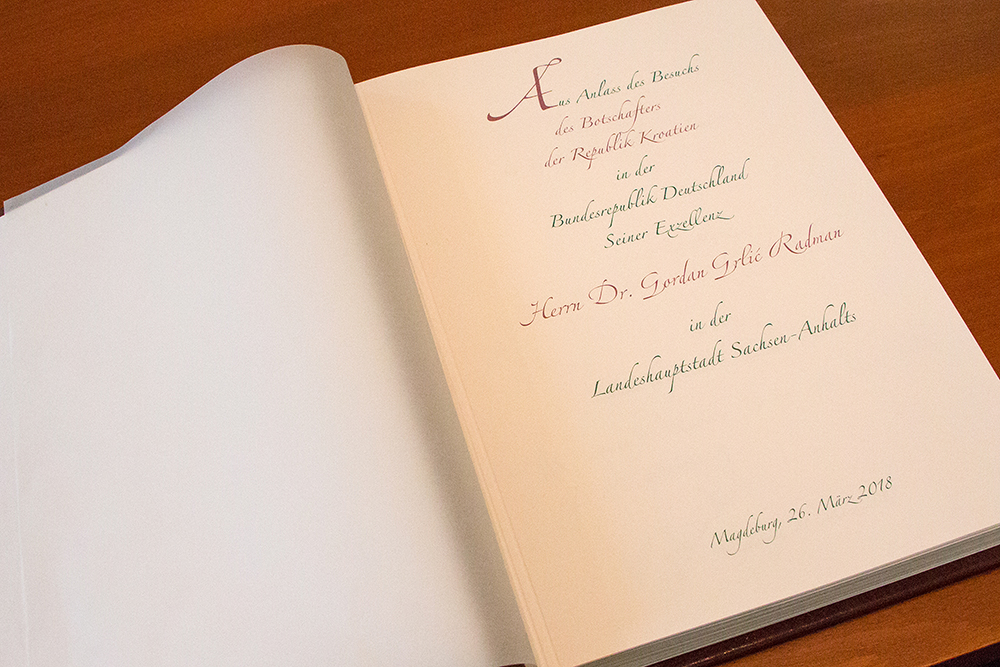 Aus Anlass des Besuchs
des Botschafters
der Republik Kroatien
in der
Bundesrepublik Deutschland
Seiner Exzellenz
Herrn Dr. Gordan Grlić Radman
in der
Landeshauptstadt Sachsen-Anhalts
Magdeburg, 26. März 2018